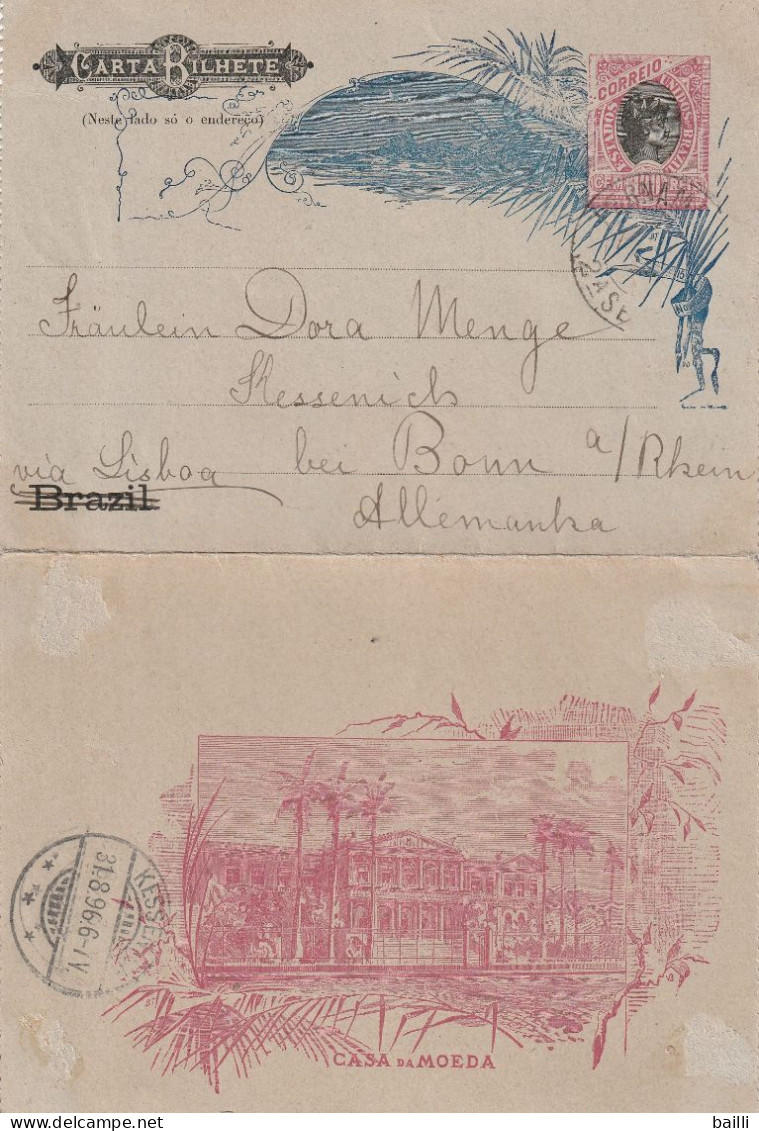 CARTA BILHETE
(Neste lado só o endereço)
CORREIO
Fräulein Dora Menge
Kessenich
via Lisboa bei Bonn a/Rhein
Brazil
Allemanha
KESSEN
31.8.96.6-7V.
CASA DA MOEDA
bailli